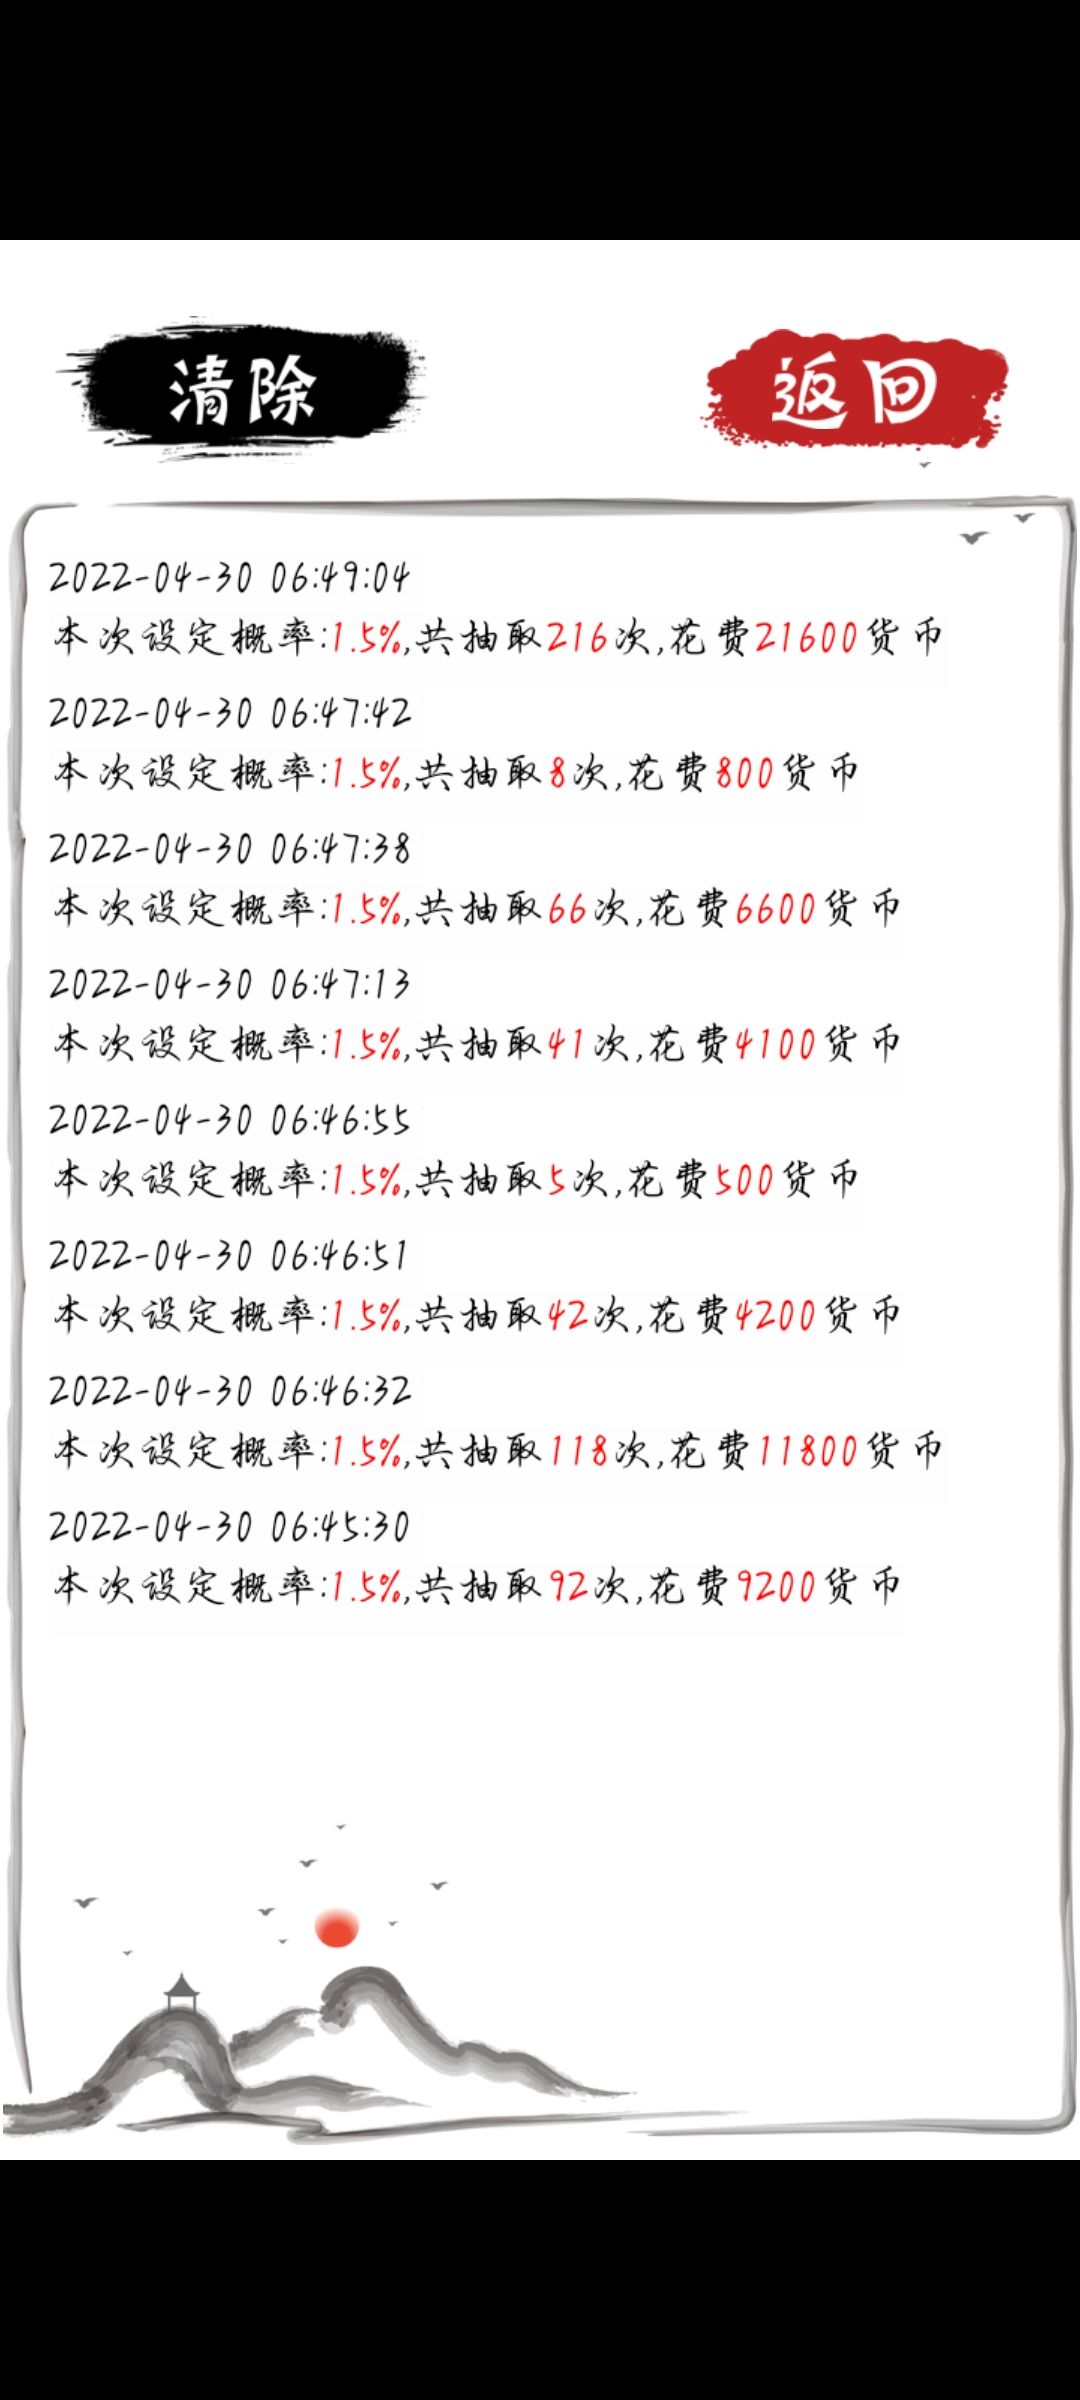 清除
返回
2022-04-30 06:49:04
本次设定概率:1.5%,共抽取216次,花费21600货币
2022-04-30 06:47:42
本次设定概率:1.5%,共抽取8次,花费800货币
2022-04-30 06:47:38
本次设定概率:1.5%,共抽取66次,花费6600货币
2022-04-30 06:47:13
本次设定概率:1.5%,共抽取41次,花费4100货币
2022-04-30 06:46:55
本次设定概率:1.5%,共抽取5次,花费500货币
2022-04-30 06:46:51
本次设定概率:1.5%,共抽取42次,花费4200货币
2022-04-30 06:46:32
本次设定概率:1.5%,共抽取118次,花费11800货币
2022-04-30 06:45:30
本次设定概率:1.5%,共抽取92次,花费9200货币